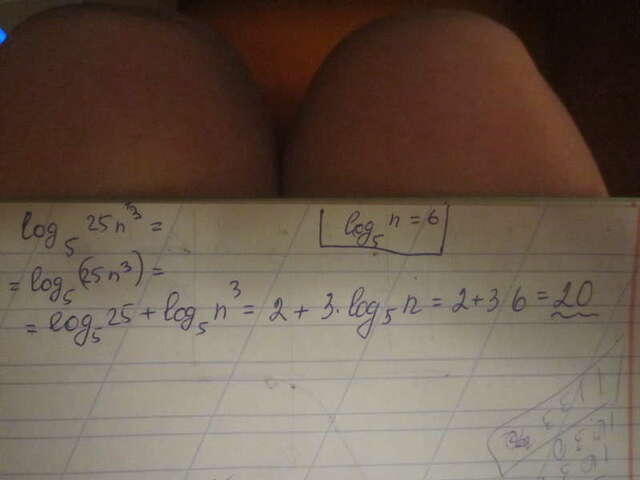 log₅ 25n³ =
log₅ n = 6
= log₅(25n³) =
= log₅ 25 + log₅ n³ = 2 + 3·log₅ n = 2 + 3 6 = 20